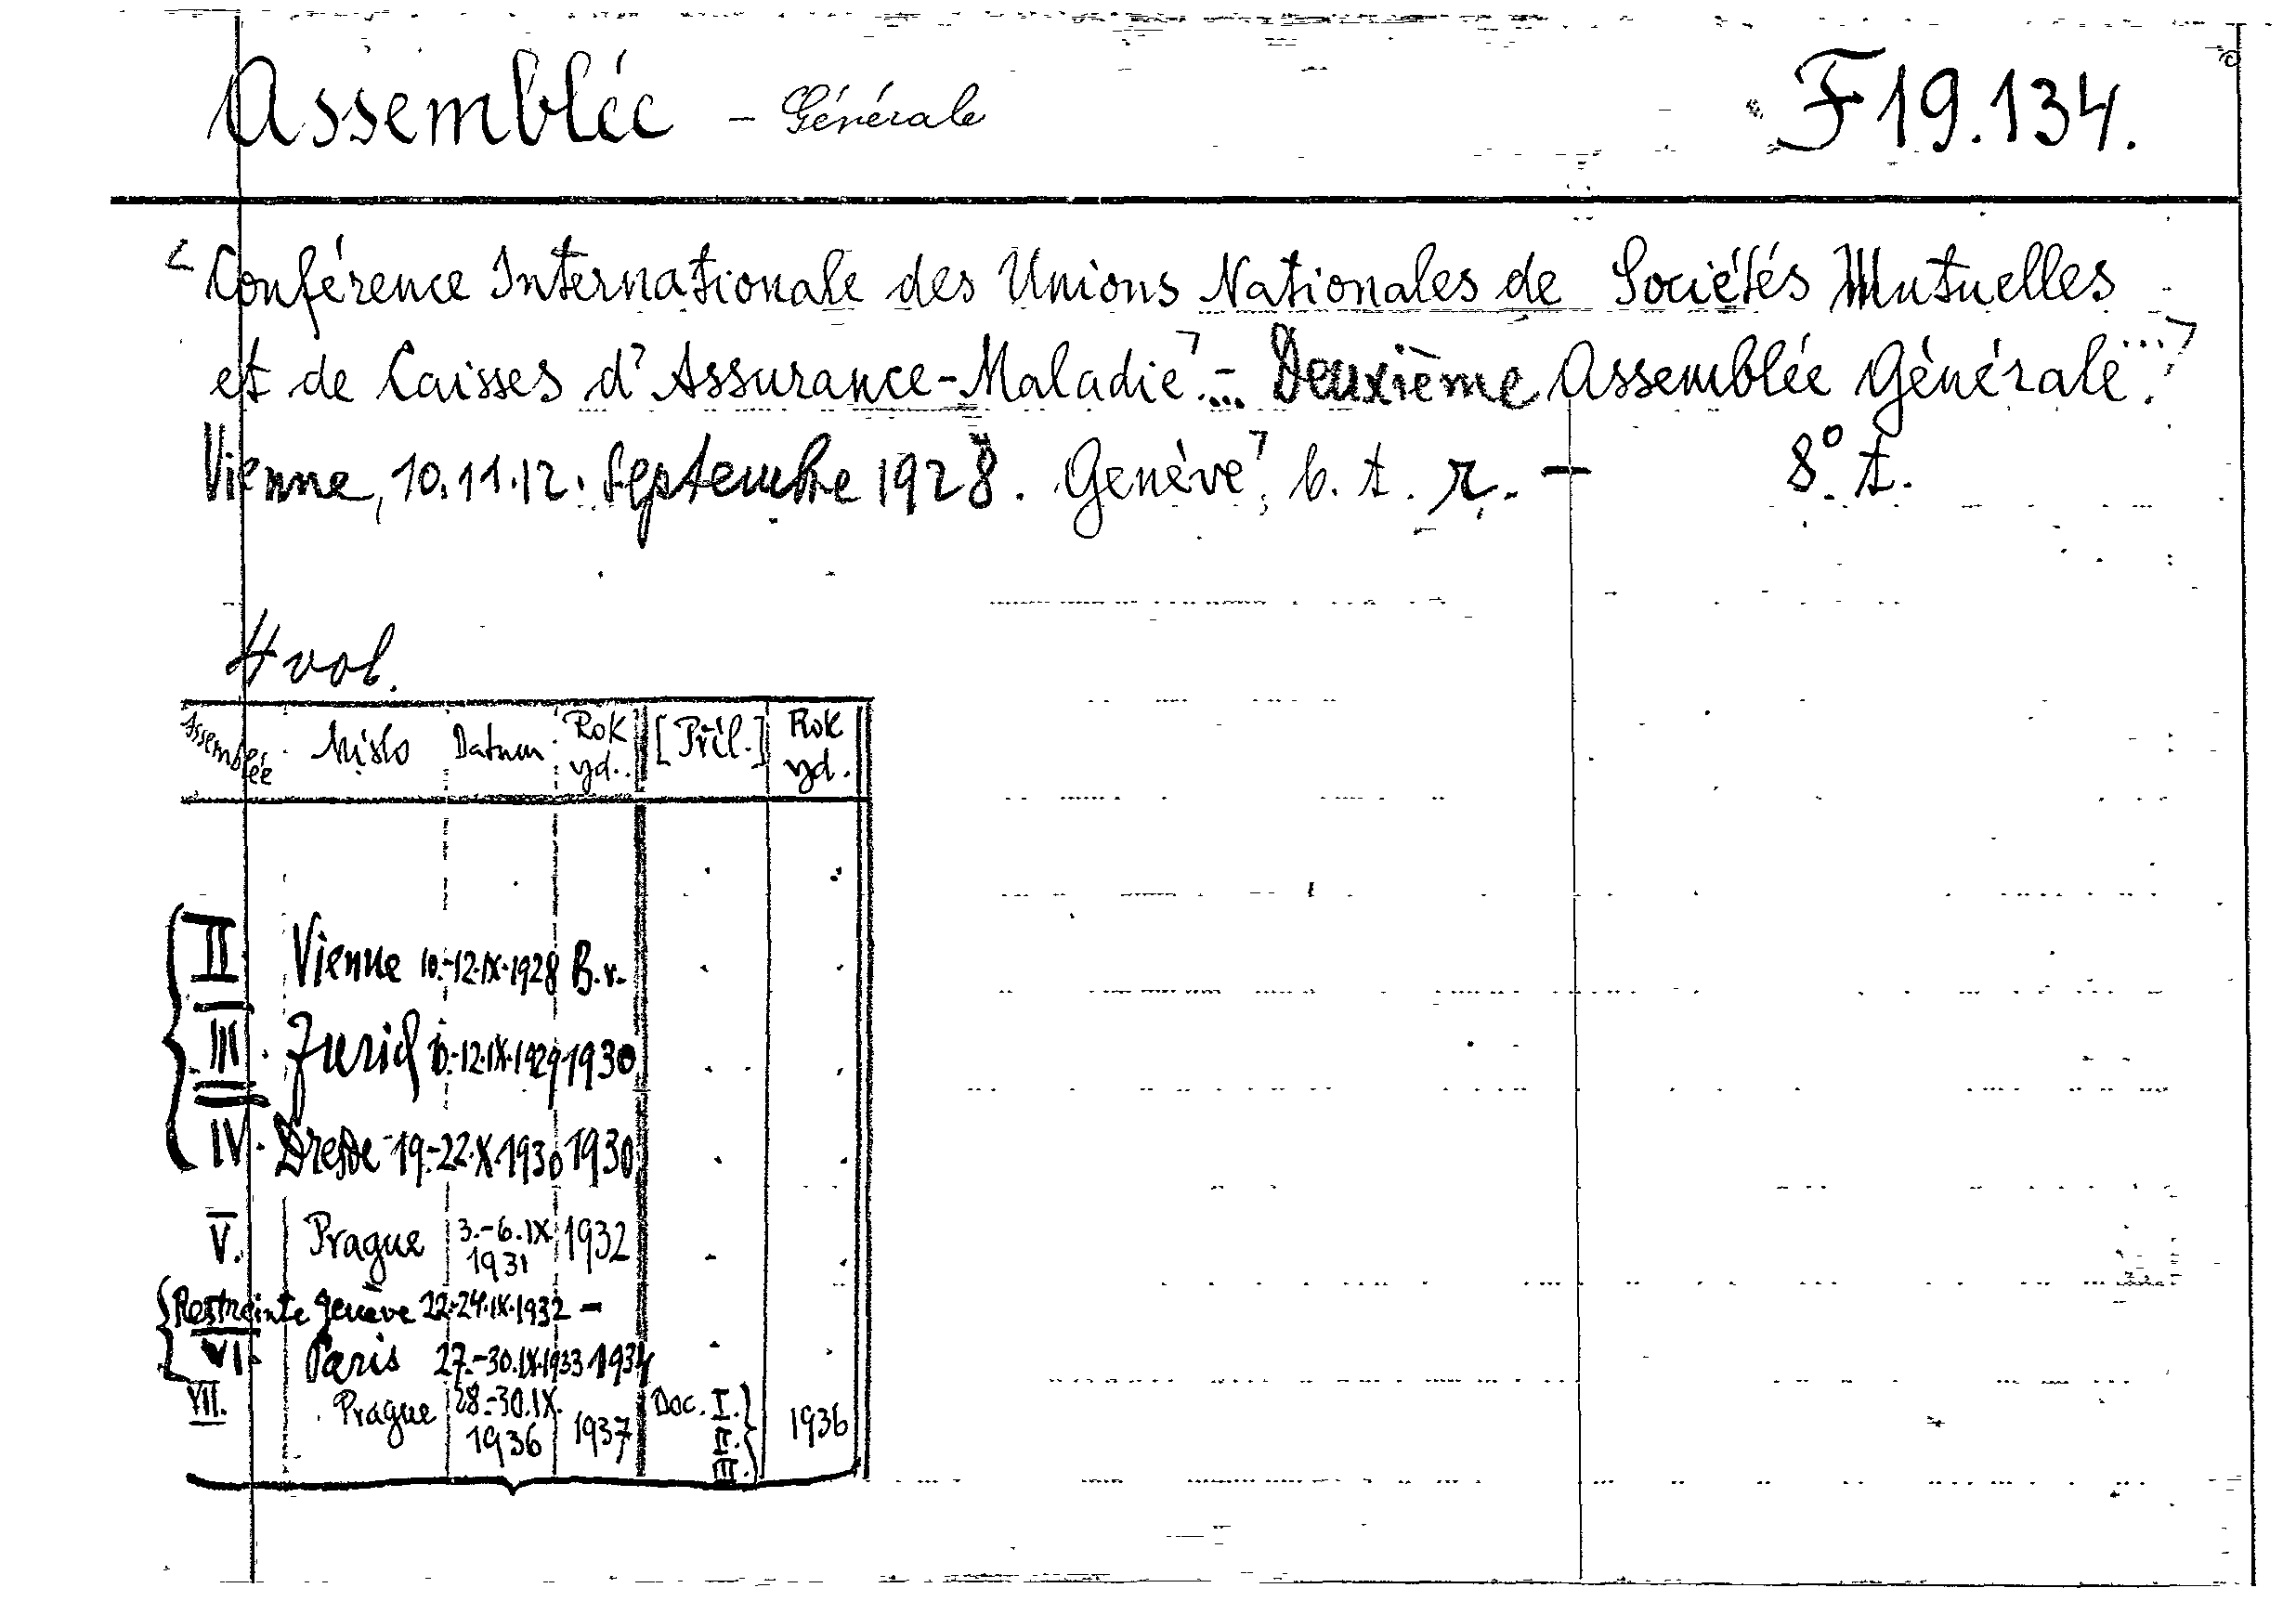 Assemblée - Générale F 19.134.
<Conférence Internationale des Unions Nationales de Sociétés Mutuelles
et de Caisses d'Assurance-Maladie.>... Deuxième Assemblée Générale...>
Vienne, 10.11.12. Septembre 1928. Genève>, b. t. r. - 8°. t.
4 vol.
Assemblée Místo Datum Rok vyd. [Příl.] Rok vyd.
II. Vienne 10.-12.IX.1928 B.r.
III. Zurich 10.-12.IX.1929 1930
IV. Dresde 19.-22.X.1930 1930
V. Prague 3.-6.IX. 1931 1932
Restreinte Genève 22-24.IX.1932 -
VI. Paris 27.-30.IX.1933 1934
VII. Prague 28.-30.IX. 1936 1937 Doc. I. II. III. } 1936